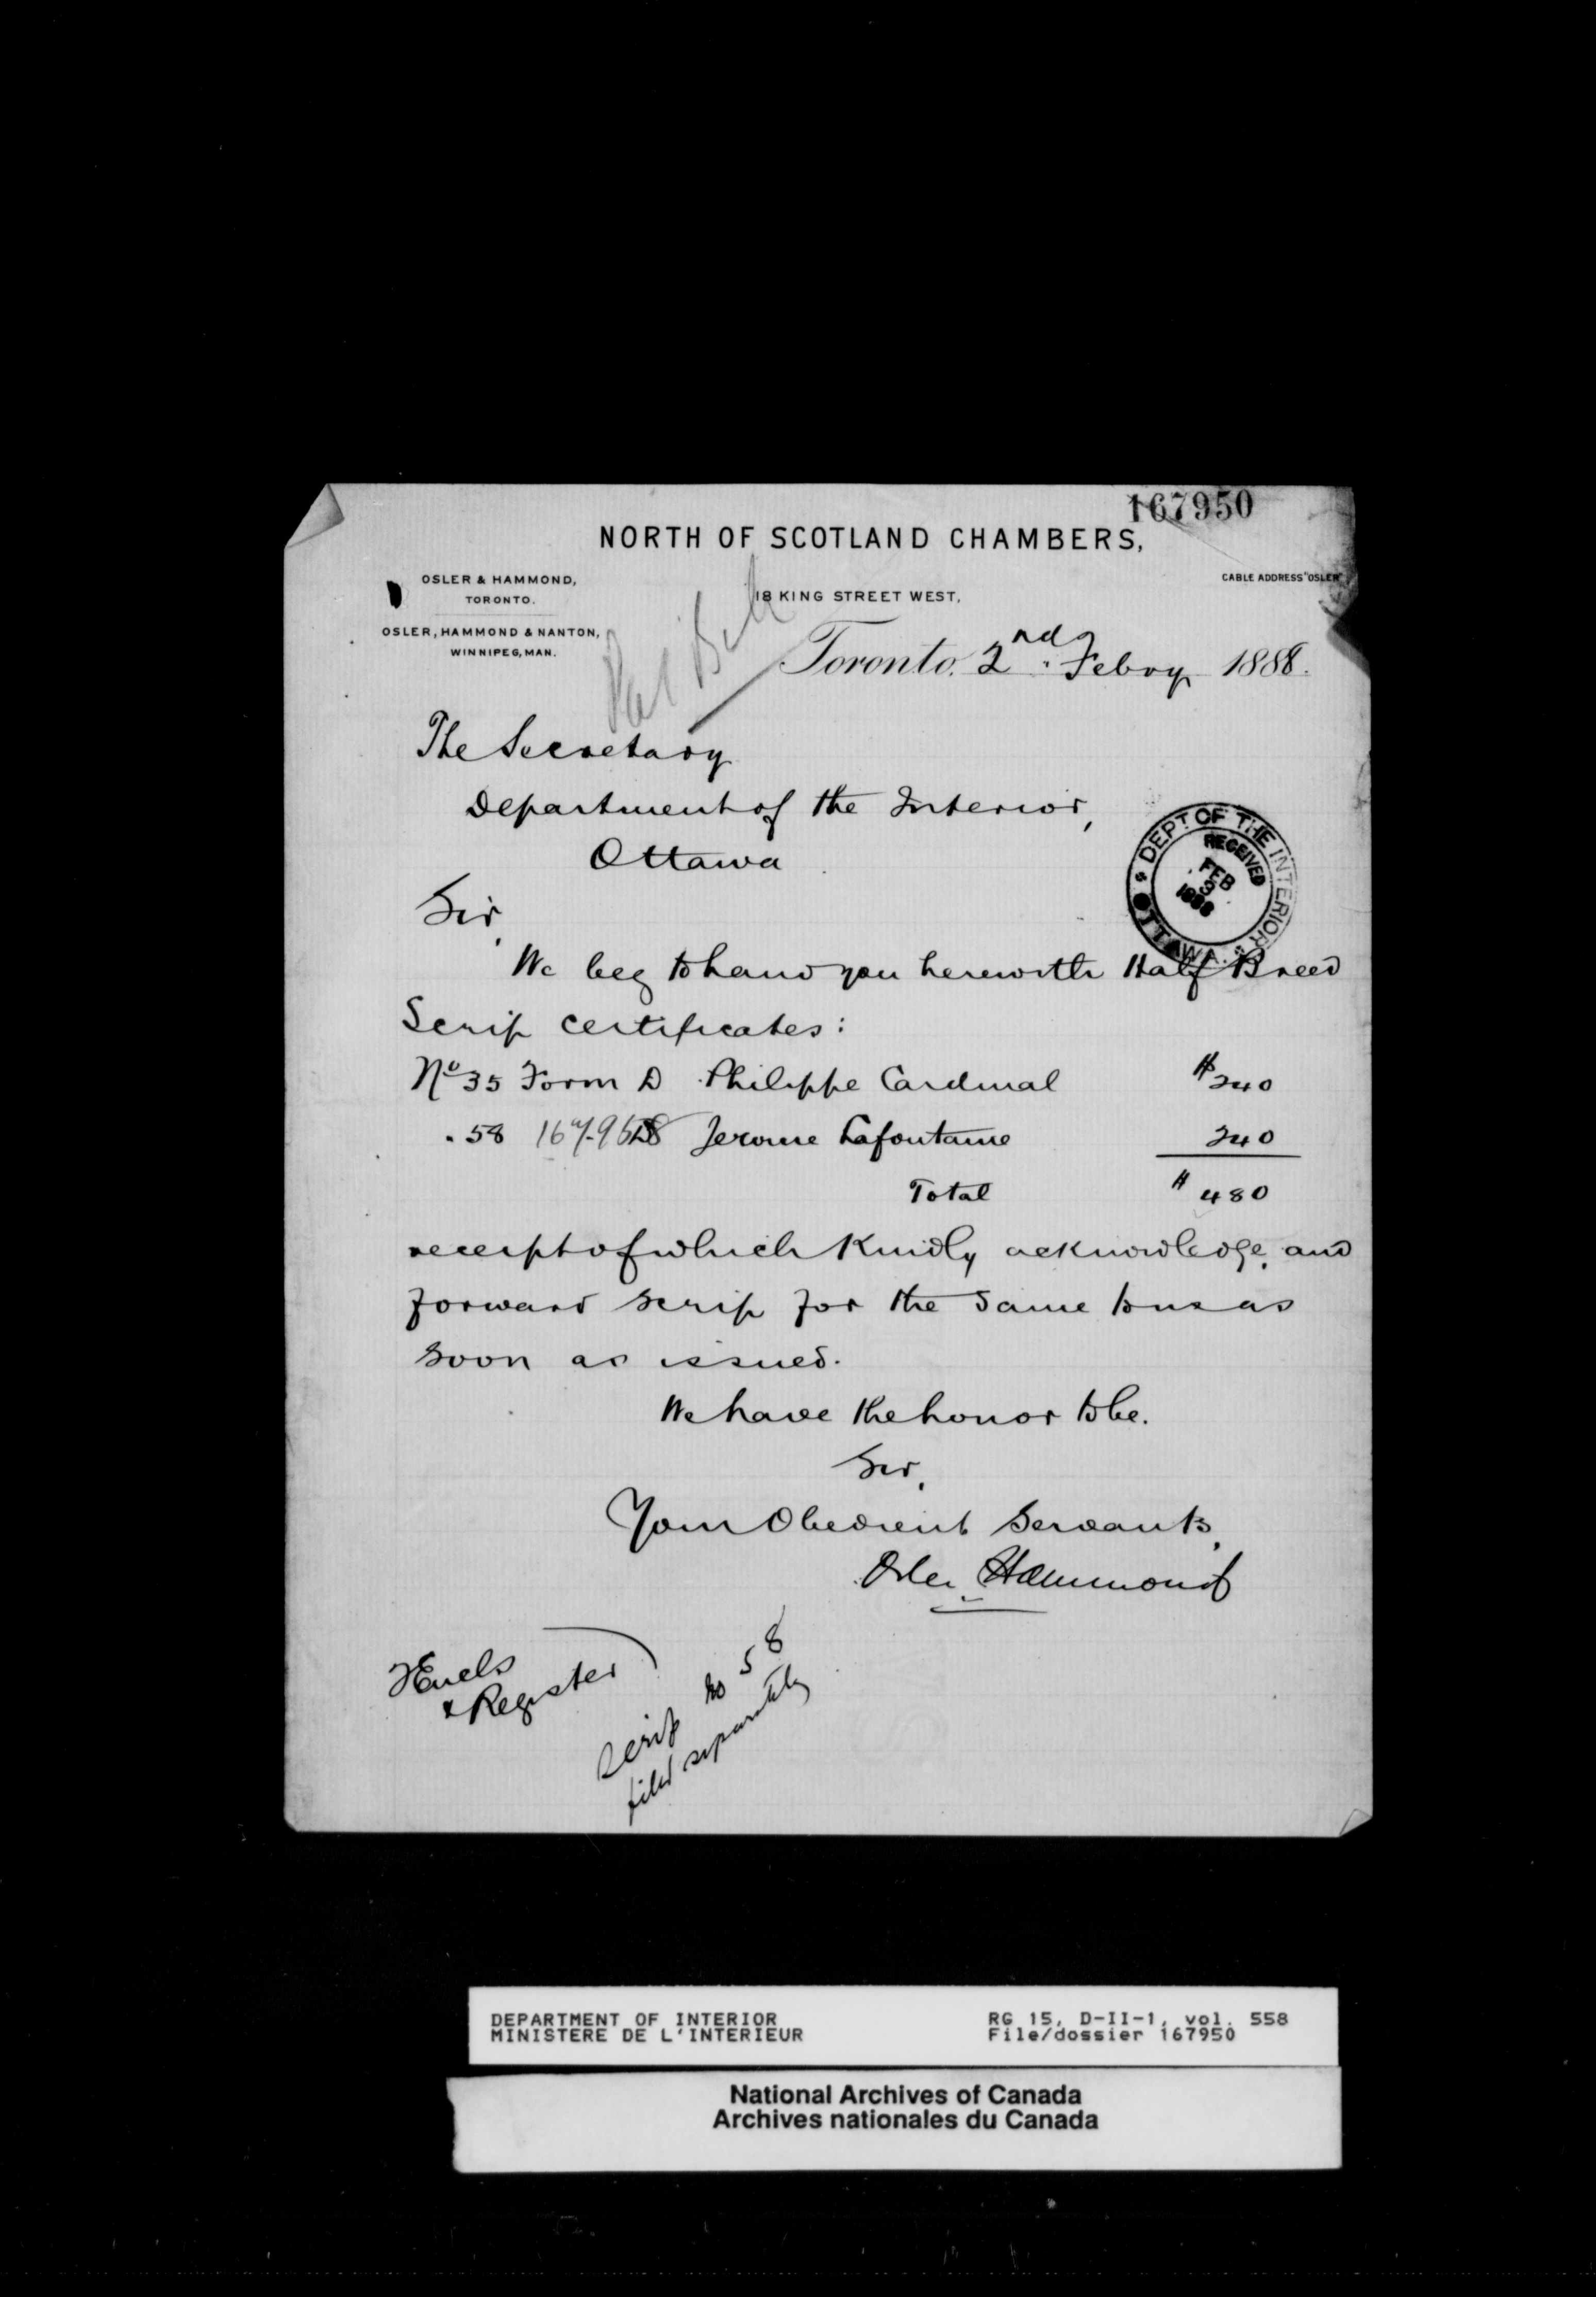 167950
NORTH OF SCOTLAND CHAMBERS,
OSLER & HAMMOND,
TORONTO.
OSLER, HAMMOND & NANTON,
WINNIPEG, MAN.
18 KING STREET WEST,
CABLE ADDRESS "OSLER"
Toronto, 2nd Febry 1888.
The Secretary
Department of the Interior,
Ottawa
DEPT OF THE INTERIOR
RECEIVED
FEB 3
1888
OTTAWA.
Sir,
We beg to hand you herewith Half Breed
Scrip certificates:
No 35 Form D Philippe Cardinal $240
" 58 167958 Jerome Lafontaine 240
Total $480
receipt of which kindly acknowledge, and
forward scrip for the same to us as
soon as issued.
We have the honor to be.
Sir,
Your Obedient Servants,
Osler & Hammond
2 Encls
& Register
Scrip No 58
filed separately
DEPARTMENT OF INTERIOR
MINISTERE DE L'INTERIEUR
RG 15, D-II-1, vol. 558
File/dossier 167950
National Archives of Canada
Archives nationales du Canada